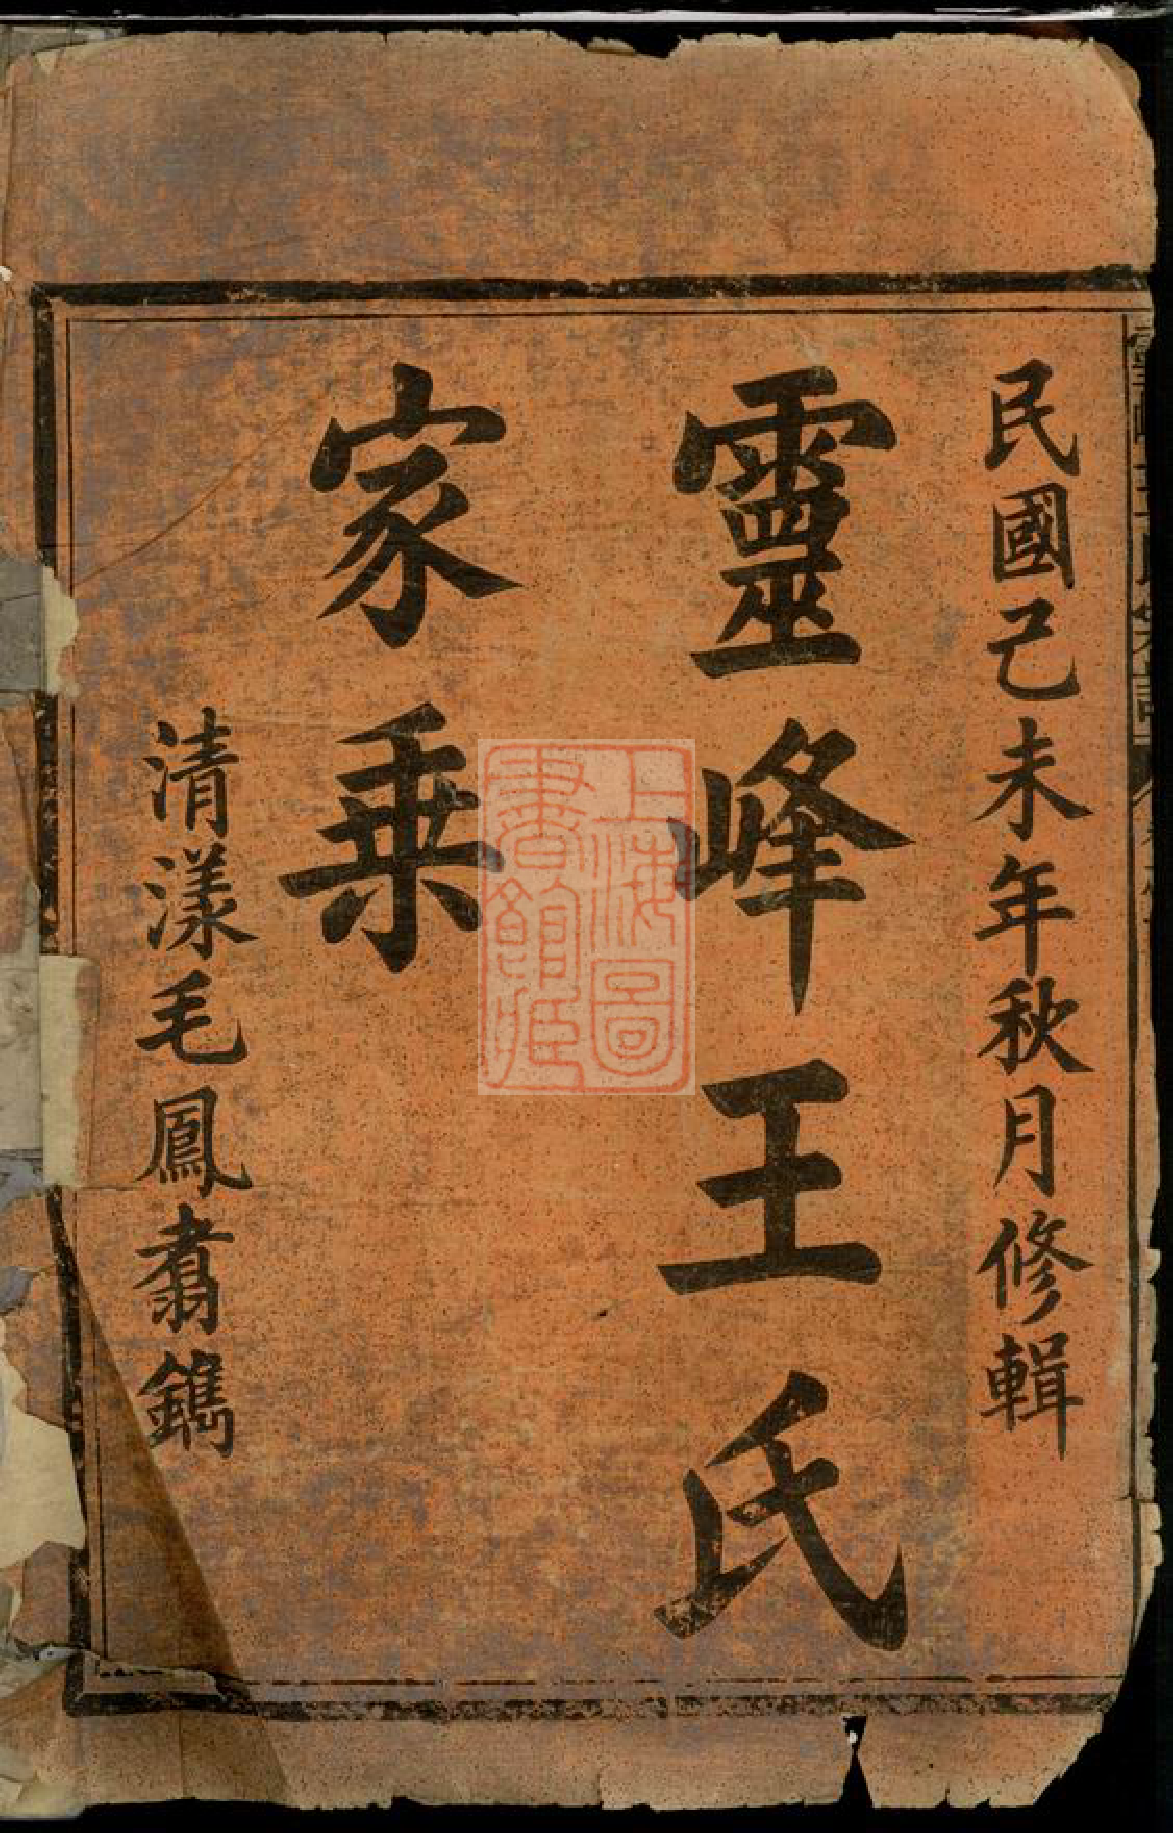 民國己未年秋月修輯
靈峰王氏
家乘
清漾毛鳳翥鐫
上海圖
書館藏